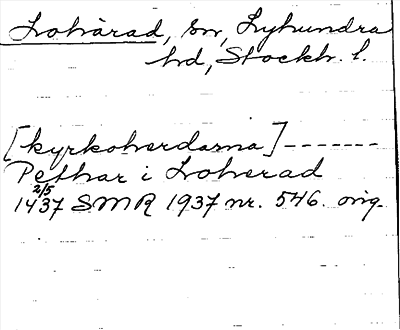 Lohärad, sn, Lyhundra
hd, Stockh. l.
[kyrkoherdarna]-------
Pethar i Loherad
2/5
1437 SMR 1937 nr. 546. orig.